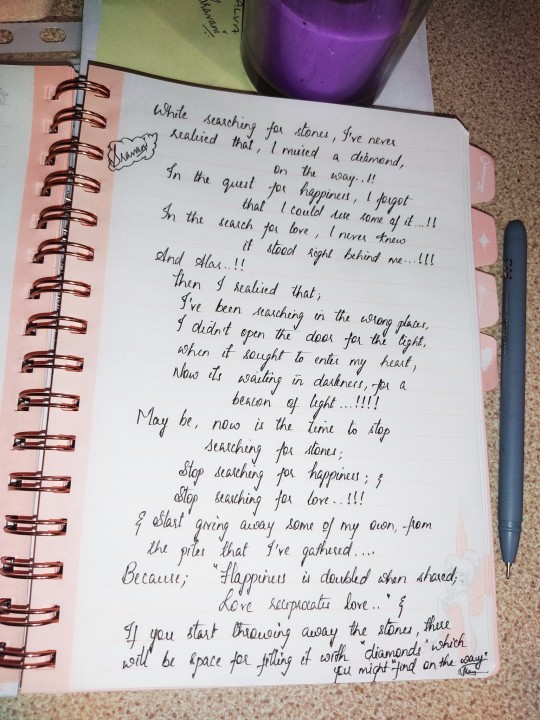 ALVA
Shravani
While searching for stones, I've never
realised that, I missed a diamond,
on the way..!!
Shravani
In the quest for happiness, I forgot
that I could use some of it...!!
In the search for love, I never knew
it stood right behind me...!!!
And Alas..!!
Then I realised that;
I've been searching in the wrong places,
I didn't open the door for the light,
when it sought to enter my heart,
Now its waiting in darkness, for a
beacon of light...!!!!
May be, now is the time to stop
searching for stones;
Stop searching for happiness; &
Stop searching for love..!!!
& Start giving away some of my own, from
the piles that I've gathered....
Because; "Happiness is doubled when shared;
Love reciprocates love.." &
If you start throwing away the stones, there
will be space for filling it with "diamonds" which
you might "find on the way"